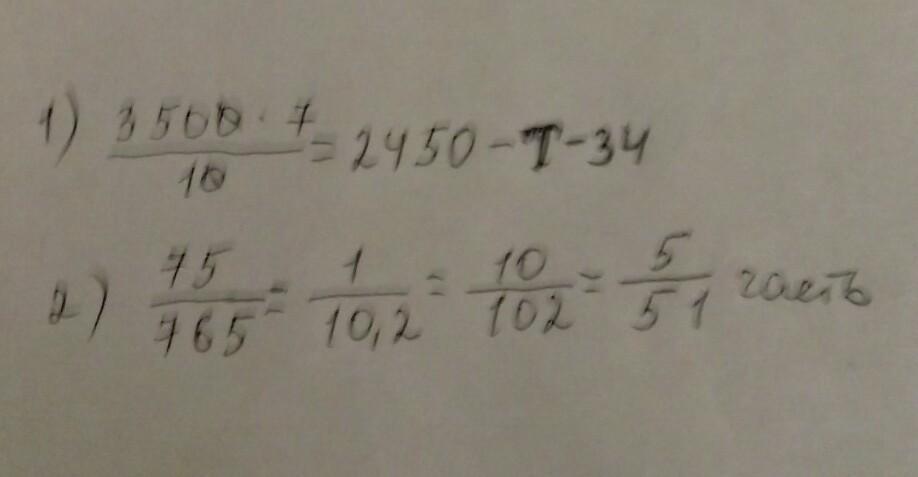 1) 3500 · 7 / 10 = 2450 - Т-34
2) 75 / 765 = 1 / 10,2 = 10 / 102 = 5 / 51 часть